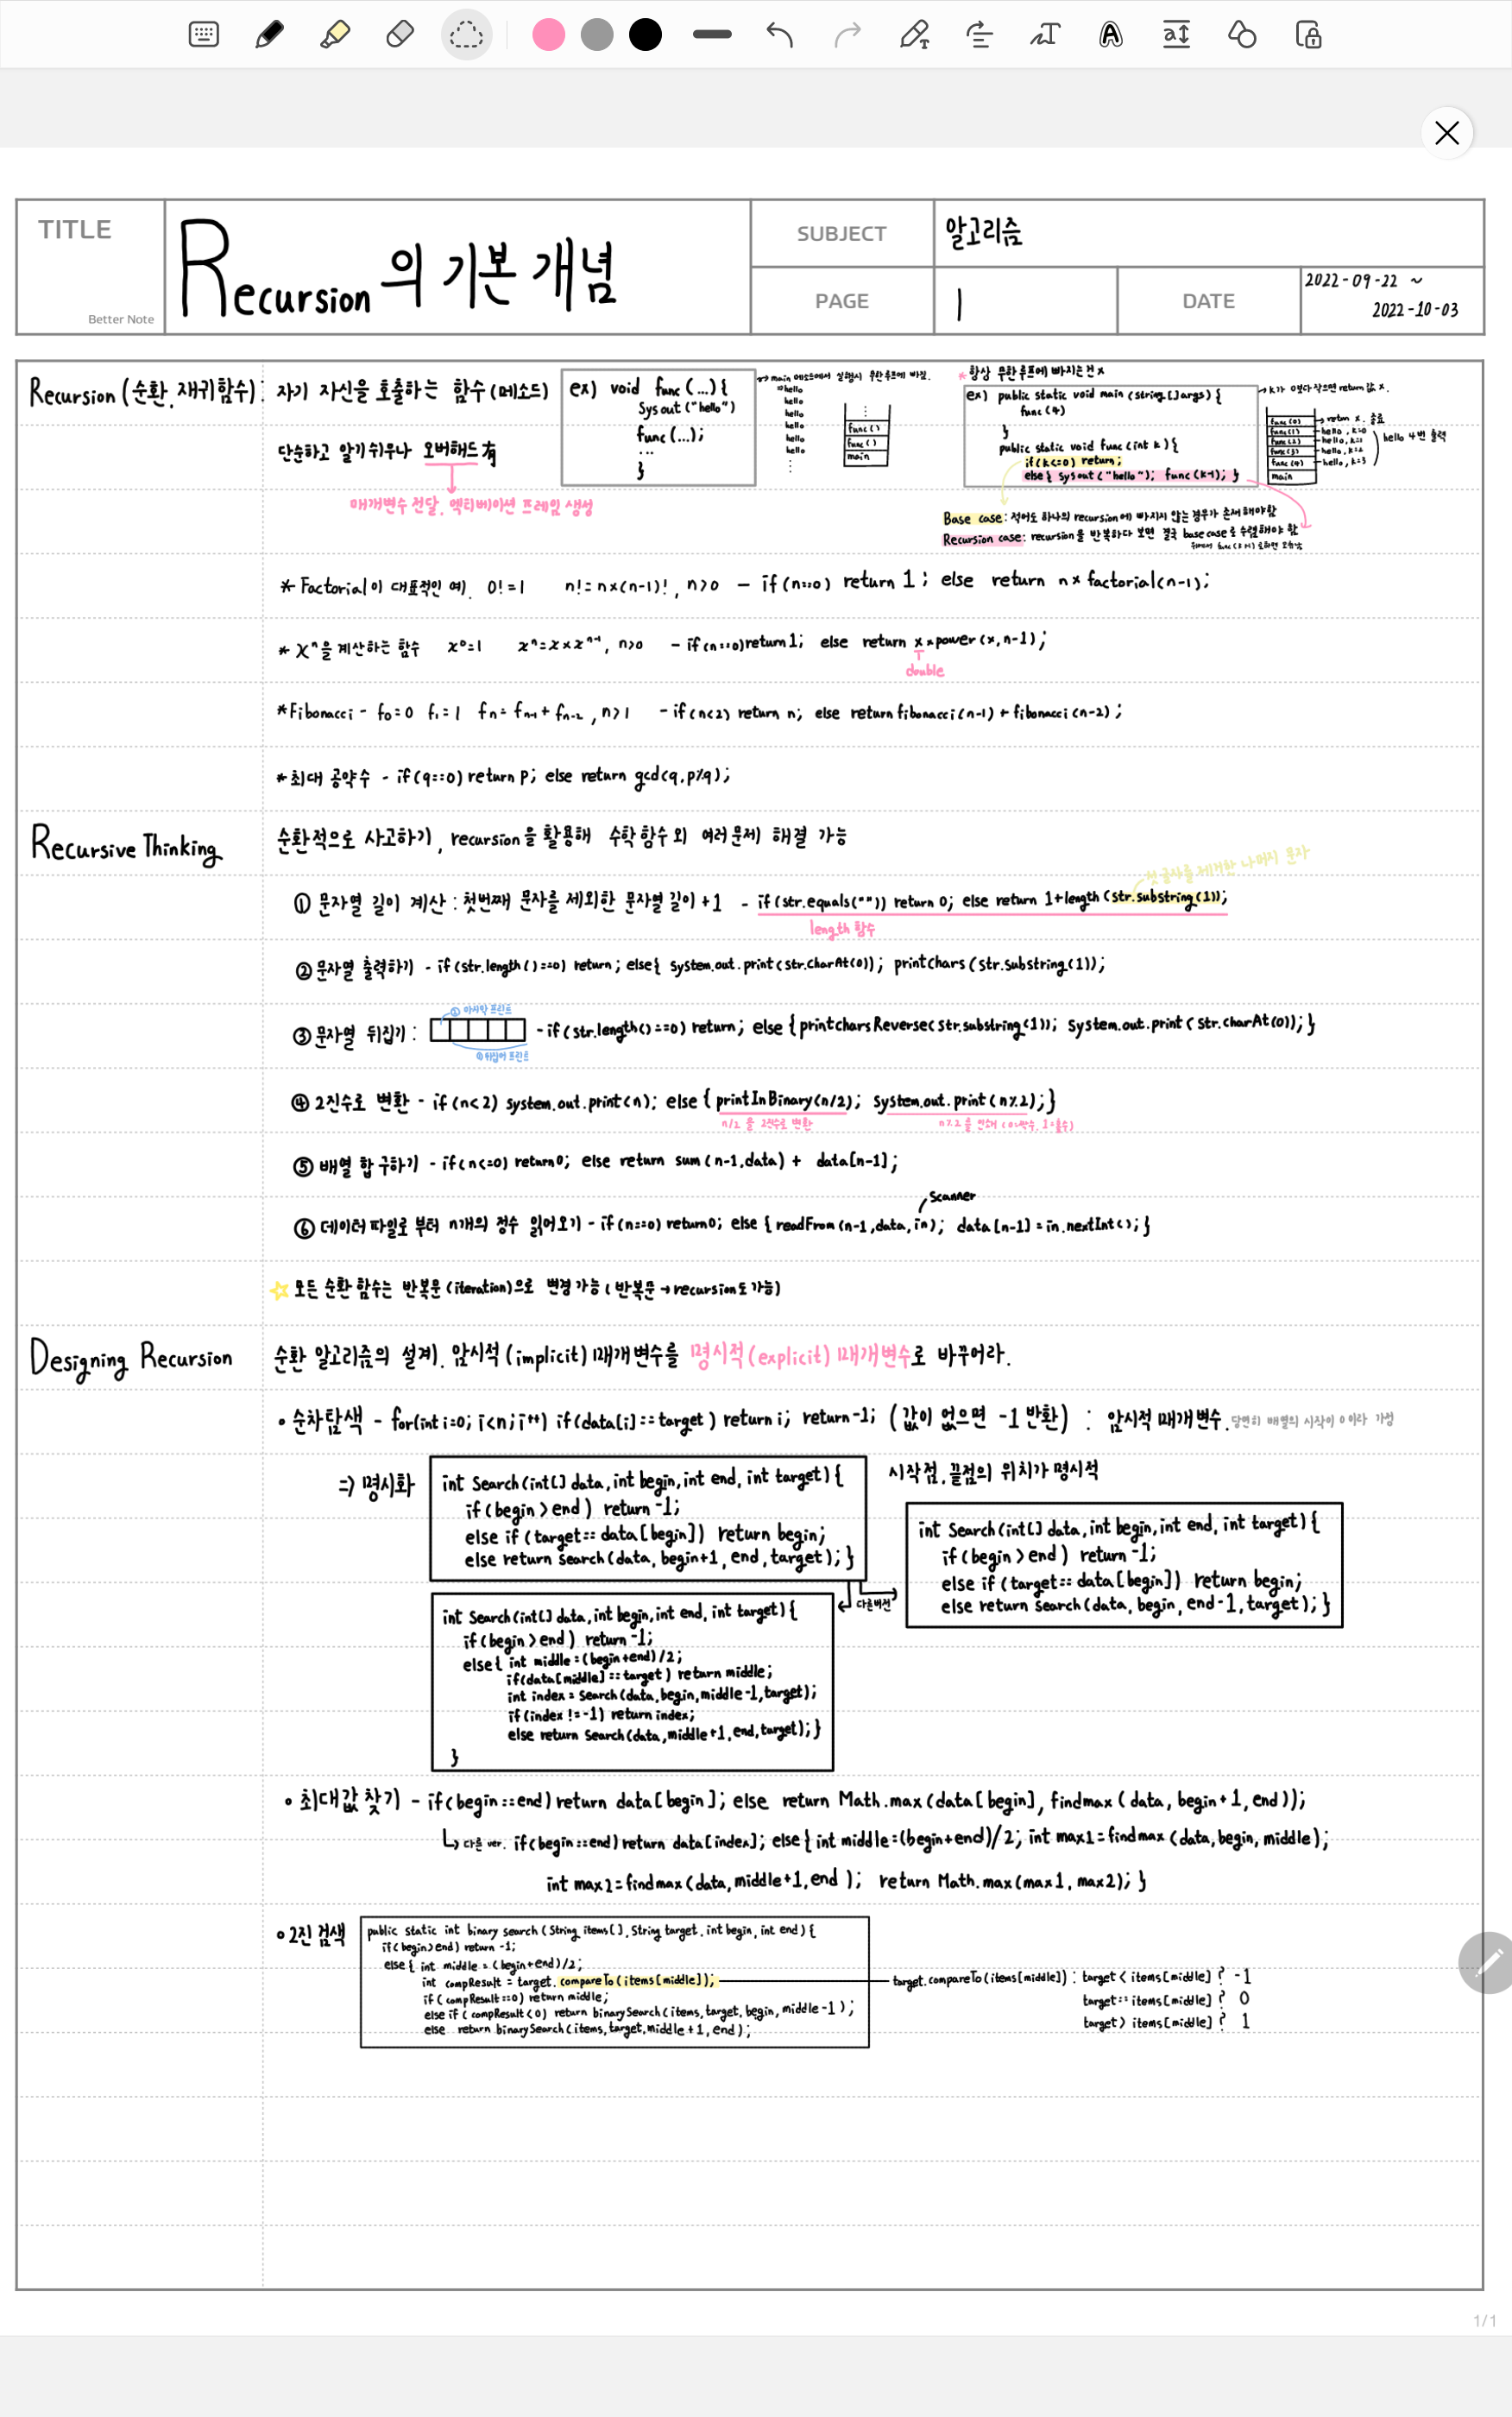 TITLE
Better Note
Recursion의 기본 개념
SUBJECT
알고리즘
PAGE
1
DATE
2022-09-22 ~
2022-10-03
Recursion (순환, 재귀함수): 자기 자신을 호출하는 함수 (메소드)
단순하고 알기 쉬우나 오버헤드 有
매개변수 전달, 액티베이션 프레임 생성
ex) void func (...) {
Sysout("hello")
func(...);
...
}
→ main 메소드에서 실행시 무한루프에 빠짐.
⇒ hello
hello
hello
hello
hello
hello
⋮
func()
func()
main
* 항상 무한루프에 빠지는건 x
ex) public static void main (string[]args) {
func (4)
}
public static void func(int k){
if(k<=0) return;
else{ sysout("hello"); func(k-1); }
→ k가 0보다 작으면 return 값 x.
func(0) → return x. 종료
func(1) - hello, k=0
func(2) - hello, k=1
func(3) - hello, k=2
func(4) - hello, k=3
main
hello 4번 출력
Base case : 적어도 하나의 recursion에 빠지지 않는 경우가 존재해야함
Recursion case : recursion을 반복하다 보면 결국 base case로 수렴해야 함
* Factorial이 대표적인 예. 0!=1 n!=n×(n-1)!, n>0 - if(n==0) return 1; else return n×factorial(n-1);
* xⁿ을 계산하는 함수 x⁰=1 xⁿ=x×xⁿ⁻¹, n>0 - if(n==0)return1; else return x×power(x,n-1);
double
*Fibonacci - f₀=0 f₁=1 fn=fn-1+fn-2, n>1 - if(n<2) return n; else return fibonacci(n-1)+fibonacci(n-2);
*최대 공약수 - if(q==0) return p; else return gcd(q,p%q);
Recursive Thinking
순환적으로 사고하기, recursion을 활용해 수학함수 외 여러문제 해결 가능
첫 글자를 제거한 나머지 문자
① 문자열 길이 계산 : 첫번째 문자를 제외한 문자열 길이 +1 - if(str.equals("")) return 0; else return 1+length(str.substring(1));
length 함수
② 문자열 출력하기 - if(str.length()==0) return; else{ system.out.print(str.charAt(0)); printchars(str.substring(1));
② 마지막 프린트
③ 문자열 뒤집기 : - if(str.length()==0) return; else {printcharsReverse(str.substring(1)); system.out.print(str.charAt(0));}
① 뒤집어 프린트
④ 2진수로 변환 - if(n<2) system.out.print(n); else {printInBinary(n/2); system.out.print(n%2);}
n/2 를 2진수로 변환
⑤ 배열 합 구하기 - if(n<=0) return0; else return sum(n-1,data) + data[n-1];
Scanner
⑥ 데이터 파일로 부터 n개의 정수 읽어오기 - if(n==0) return0; else {readFrom(n-1,data,in); data[n-1]=in.nextInt();}
☆ 모든 순환 함수는 반복문(iteration)으로 변경 가능 (반복문→recursion도 가능)
Designing Recursion
순환 알고리즘의 설계. 암시적(implicit) 매개변수를 명시적(explicit) 매개변수로 바꾸어라.
• 순차탐색 - for(int i=0; i<n; i++) if(data[i]==target) return i; return-1; (값이 없으면 -1 반환) : 암시적 매개변수. 당연히 배열의 시작이 0이라 가정
⇒ 명시화
int Search(int[] data, int begin, int end, int target){
if(begin>end) return -1;
else if(target==data[begin]) return begin;
else return search(data, begin+1, end, target); }
시작점, 끝점의 위치가 명시적
다른버전
int Search(int[] data, int begin, int end, int target){
if(begin>end) return -1;
else if(target==data[begin]) return begin;
else return search(data, begin, end-1, target); }
int Search(int[] data, int begin, int end, int target){
if(begin>end) return -1;
else{ int middle=(begin+end)/2;
if(data[middle]==target) return middle;
int index=Search(data,begin,middle-1,target);
if(index !=-1) return index;
else return Search(data,middle+1,end,target); }
}
• 최대값 찾기 - if(begin==end) return data[begin]; else return Math.max(data[begin], findmax(data, begin+1, end));
↳ 다른 ver. if(begin==end) return data[index]; else{ int middle=(begin+end)/2; int max1=findmax(data, begin, middle);
int max2=findmax(data, middle+1, end); return Math.max(max1, max2); }
• 2진 검색
public static int binary search (String items[], String target, int begin, int end){
if(begin>end) return -1;
else{ int middle = (begin+end)/2;
int compResult = target.compareTo(items[middle]);
if(compResult==0) return middle;
else if(compResult<0) return binarySearch(items,target,begin,middle-1);
else return binarySearch(items,target,middle+1,end);
target.compareTo(items[middle]) : target < items[middle] ? -1
target== items[middle] ? 0
target> items[middle] ? 1
1/1